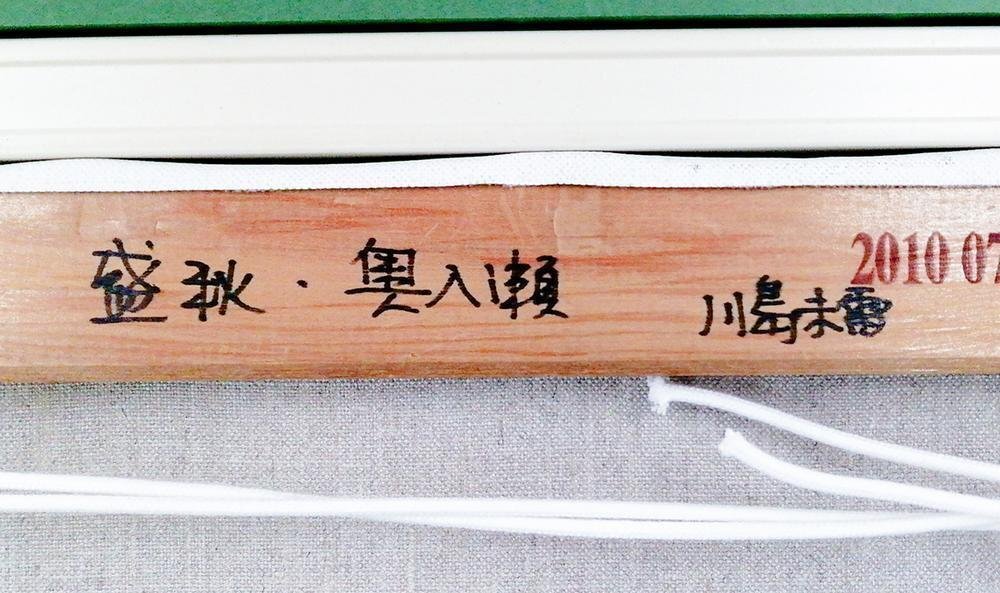 盛秋・奥入瀬
川島未雷
2010 07